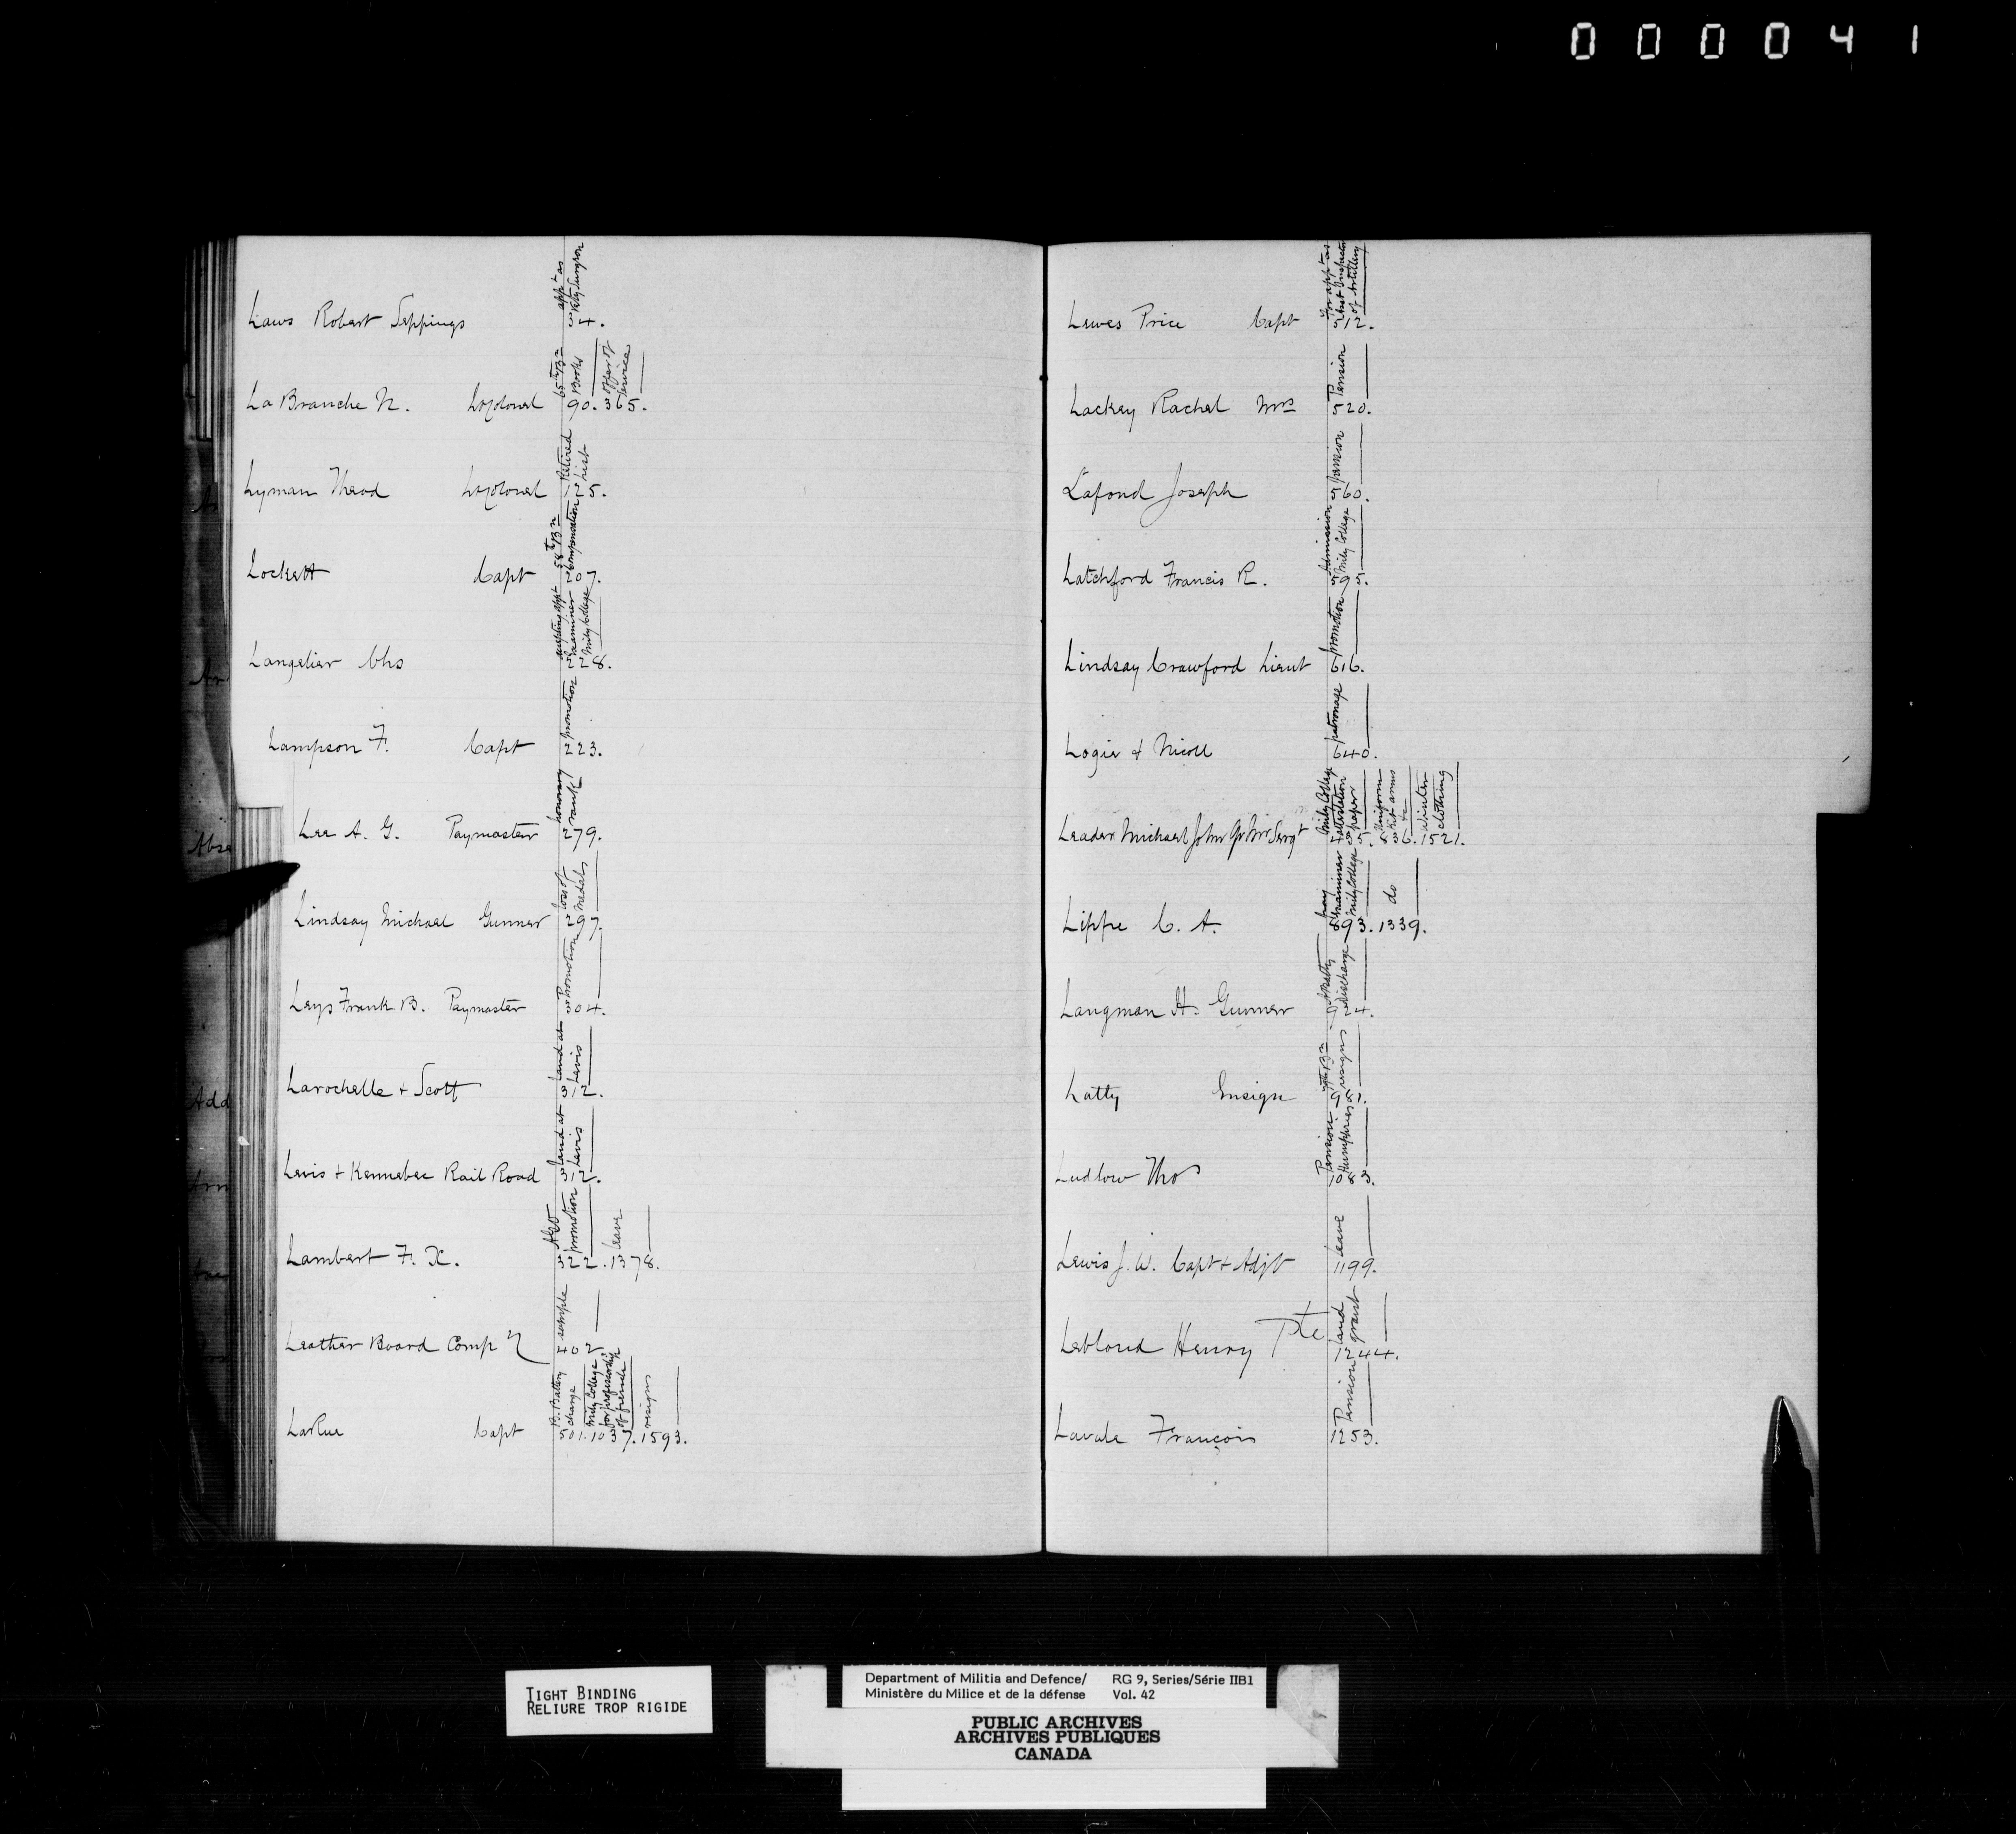 000041
appt as
Vety Surgeon
Laws Robert Seppings 34.
65th Bn
Books
offer of
service
La Branche N. Lt Colonel 90. 365.
Retired
List
Lyman Theod Lt Colonel 125.
58th Bn
Compensation
Lockett Capt 207.
accepting appt
Examiner
Mily College
Langelier Chs 228.
promotion
Lampson F. Capt 223.
honorary
rank
Lee A. G. Paymaster 279.
loss of
medals
Lindsay Michael Gunner 297.
Promotion
Leys Frank B. Paymaster 304.
Land at
Levis
Larochelle + Scott 312.
Land at
Levis
Levis + Kennebec Rail Road 312.
promotion
Leave
Lambert F. X. 322. 1378.
sample
Leather Board Compy 402
B. Battery
charge
Mily College
for professorship
of french
resigns
LaRue Capt 501. 1037. 1593.
For appt as
Asst Inspector
of Artillery
Lewes Price Capt 512.
Pension
Lackey Rachel Mrs 520.
Pension
Lafond Joseph 560.
Admission
Mily College
Latchford Francis R. 595.
promotion
Lindsay Crawford Lieut 616.
patronage
Logie & Nicoll 640.
Mily College
attestation
paper
Uniform
arms
winter
clothing
Leader Michael John Qr Mr Sergt 836. 1521.
pay
Examiner
Mily College
do
Lippe C. A. 893. 1339.
Battery
discharge
Langman H. Gunner 924.
resigns
Latty Ensign 981.
Pension
Humphries
Ludlow Thos 1083.
Leave
Lewis J. W. Capt + Adjt 1199.
land
grant
Leblond Henry Pte 1244.
Pension
Lavale François 1253.
TIGHT BINDING
RELIURE TROP RIGIDE
Department of Militia and Defence/ RG 9, Series/Série IIB1
Ministère du Milice et de la défense Vol. 42
PUBLIC ARCHIVES
ARCHIVES PUBLIQUES
CANADA